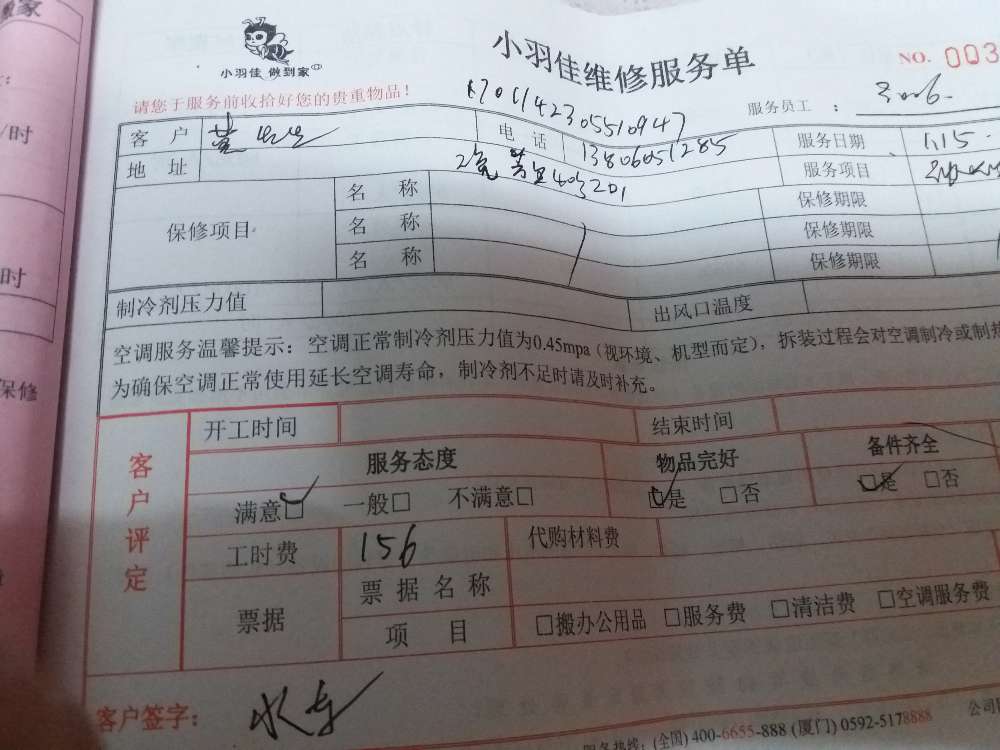 家
小羽佳 做到家
小羽佳维修服务单
NO. 003
请您于服务前收拾好您的贵重物品!
服务员工:
客 户
电 话
13806051285
服务日期
1.15
地 址
403201
服务项目
保修项目
名 称
保修期限
名 称
保修期限
名 称
保修期限
制冷剂压力值
出风口温度
空调服务温馨提示:空调正常制冷剂压力值为0.45mpa(视环境、机型而定),拆装过程会对空调制冷或制热
为确保空调正常使用延长空调寿命,制冷剂不足时请及时补充。
客户评定
开工时间
结束时间
服务态度
物品完好
备件齐全
满意☑ 一般□ 不满意□
☑是 □否
☑是 □否
工时费
156
代购材料费
票据
票据名称
项 目
□搬办公用品 □服务费 □清洁费 □空调服务费
客户签字:
服务热线:(全国)400-6655-888 (厦门) 0592-5178888
公司
/时
时
保修